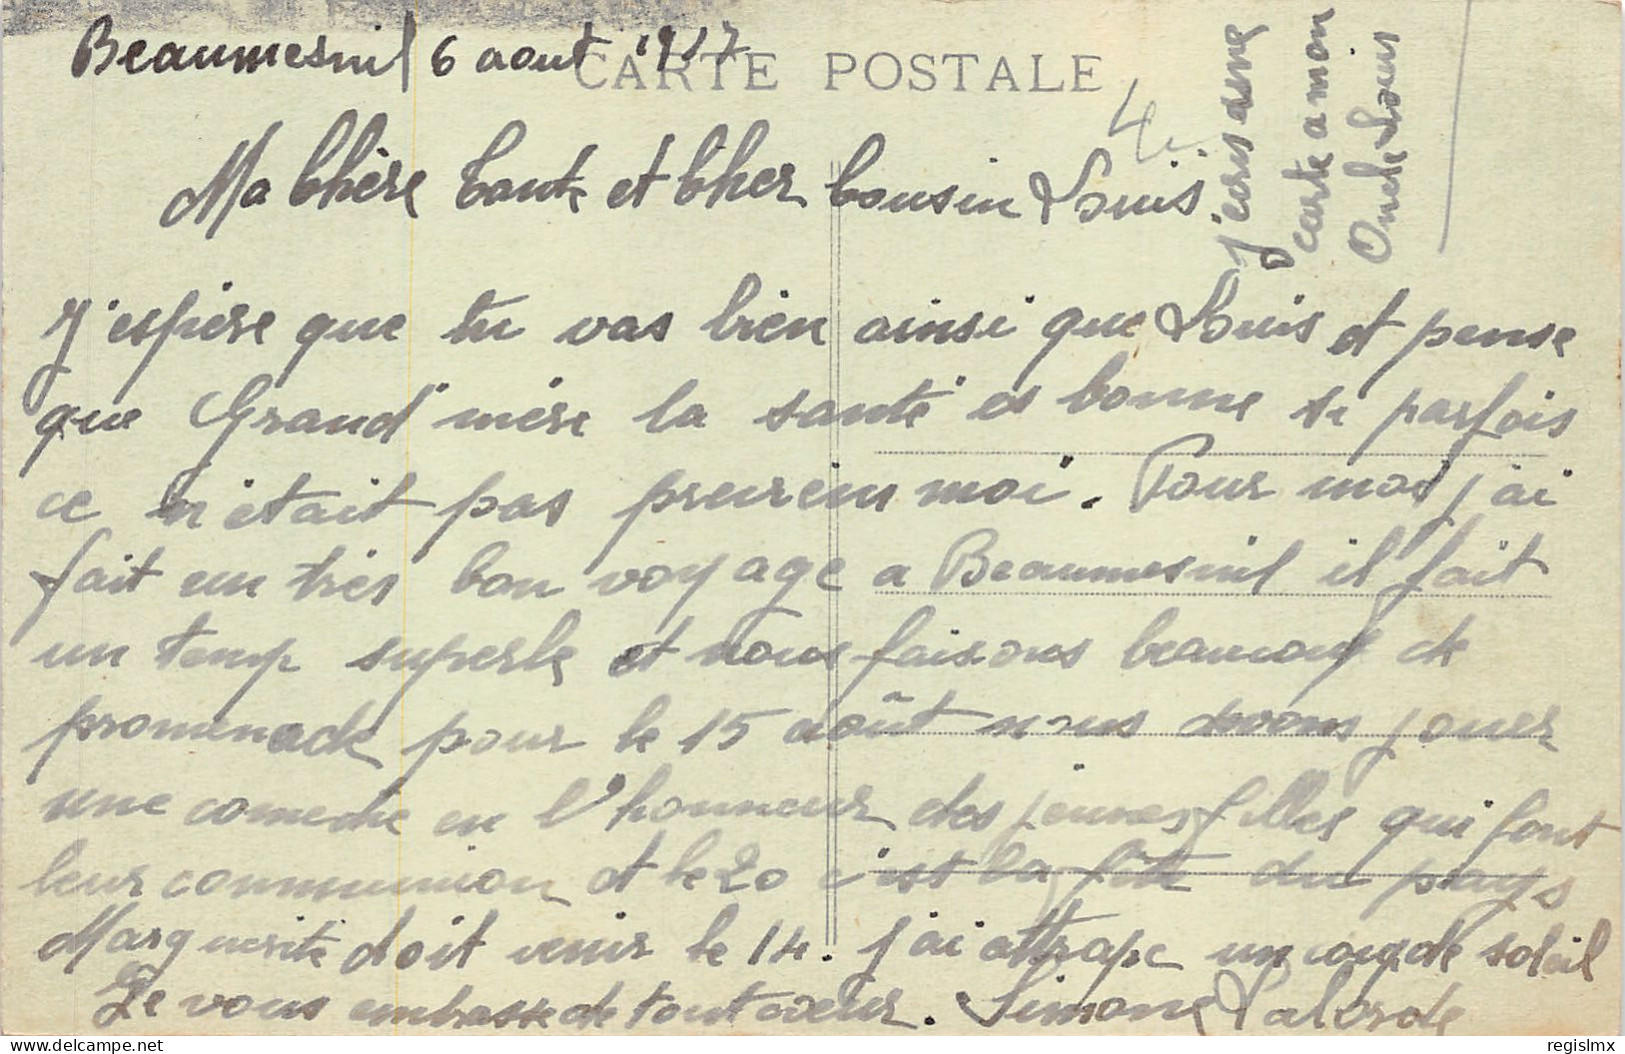 Beaumesnil 6 aout 1917
CARTE POSTALE
4
j'ecris a une
carte a mon
Oncle Louis
Ma Chère Tante et Cher Cousin Louis
J'espère que tu vas bien ainsi que Louis et pense
que Grand'mère la santé es bonne si parfois
ce n'était pas previens moi. Pour moi j'ai
fait un très bon voyage a Beaumesnil il fait
un temp superbe et nous faisons beaucoup de
promenade pour le 15 août nous devons jouer
une comedie en l'honneur des jeunes filles qui font
leur communion et le 20 c'est la fête du pays
Marguerite doit venir le 14. j'ai attrape un coup de soleil
Je vous embrasse de tout coeur. Simone Laborde
delcampe.net
regislmx